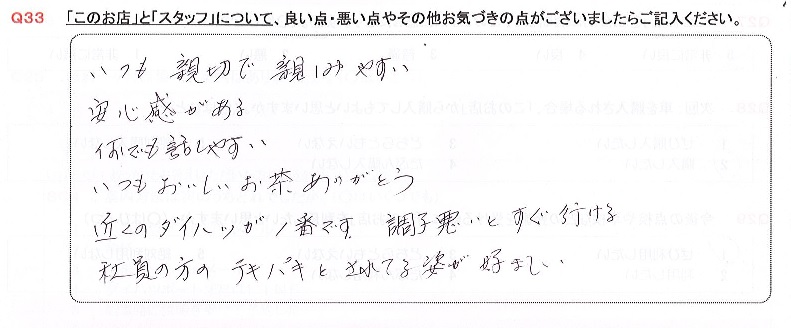 Q33 「このお店」と「スタッフ」について、良い点・悪い点やその他お気づきの点がございましたらご記入ください。
いつも 親切で 親しみやすい
安心感がある
何でも話しやすい
いつもおいしいお茶ありがとう
近くのダイハツが1番です 調子悪いとすぐ行ける
社員の方の テキパキと されてる姿が 好ましい